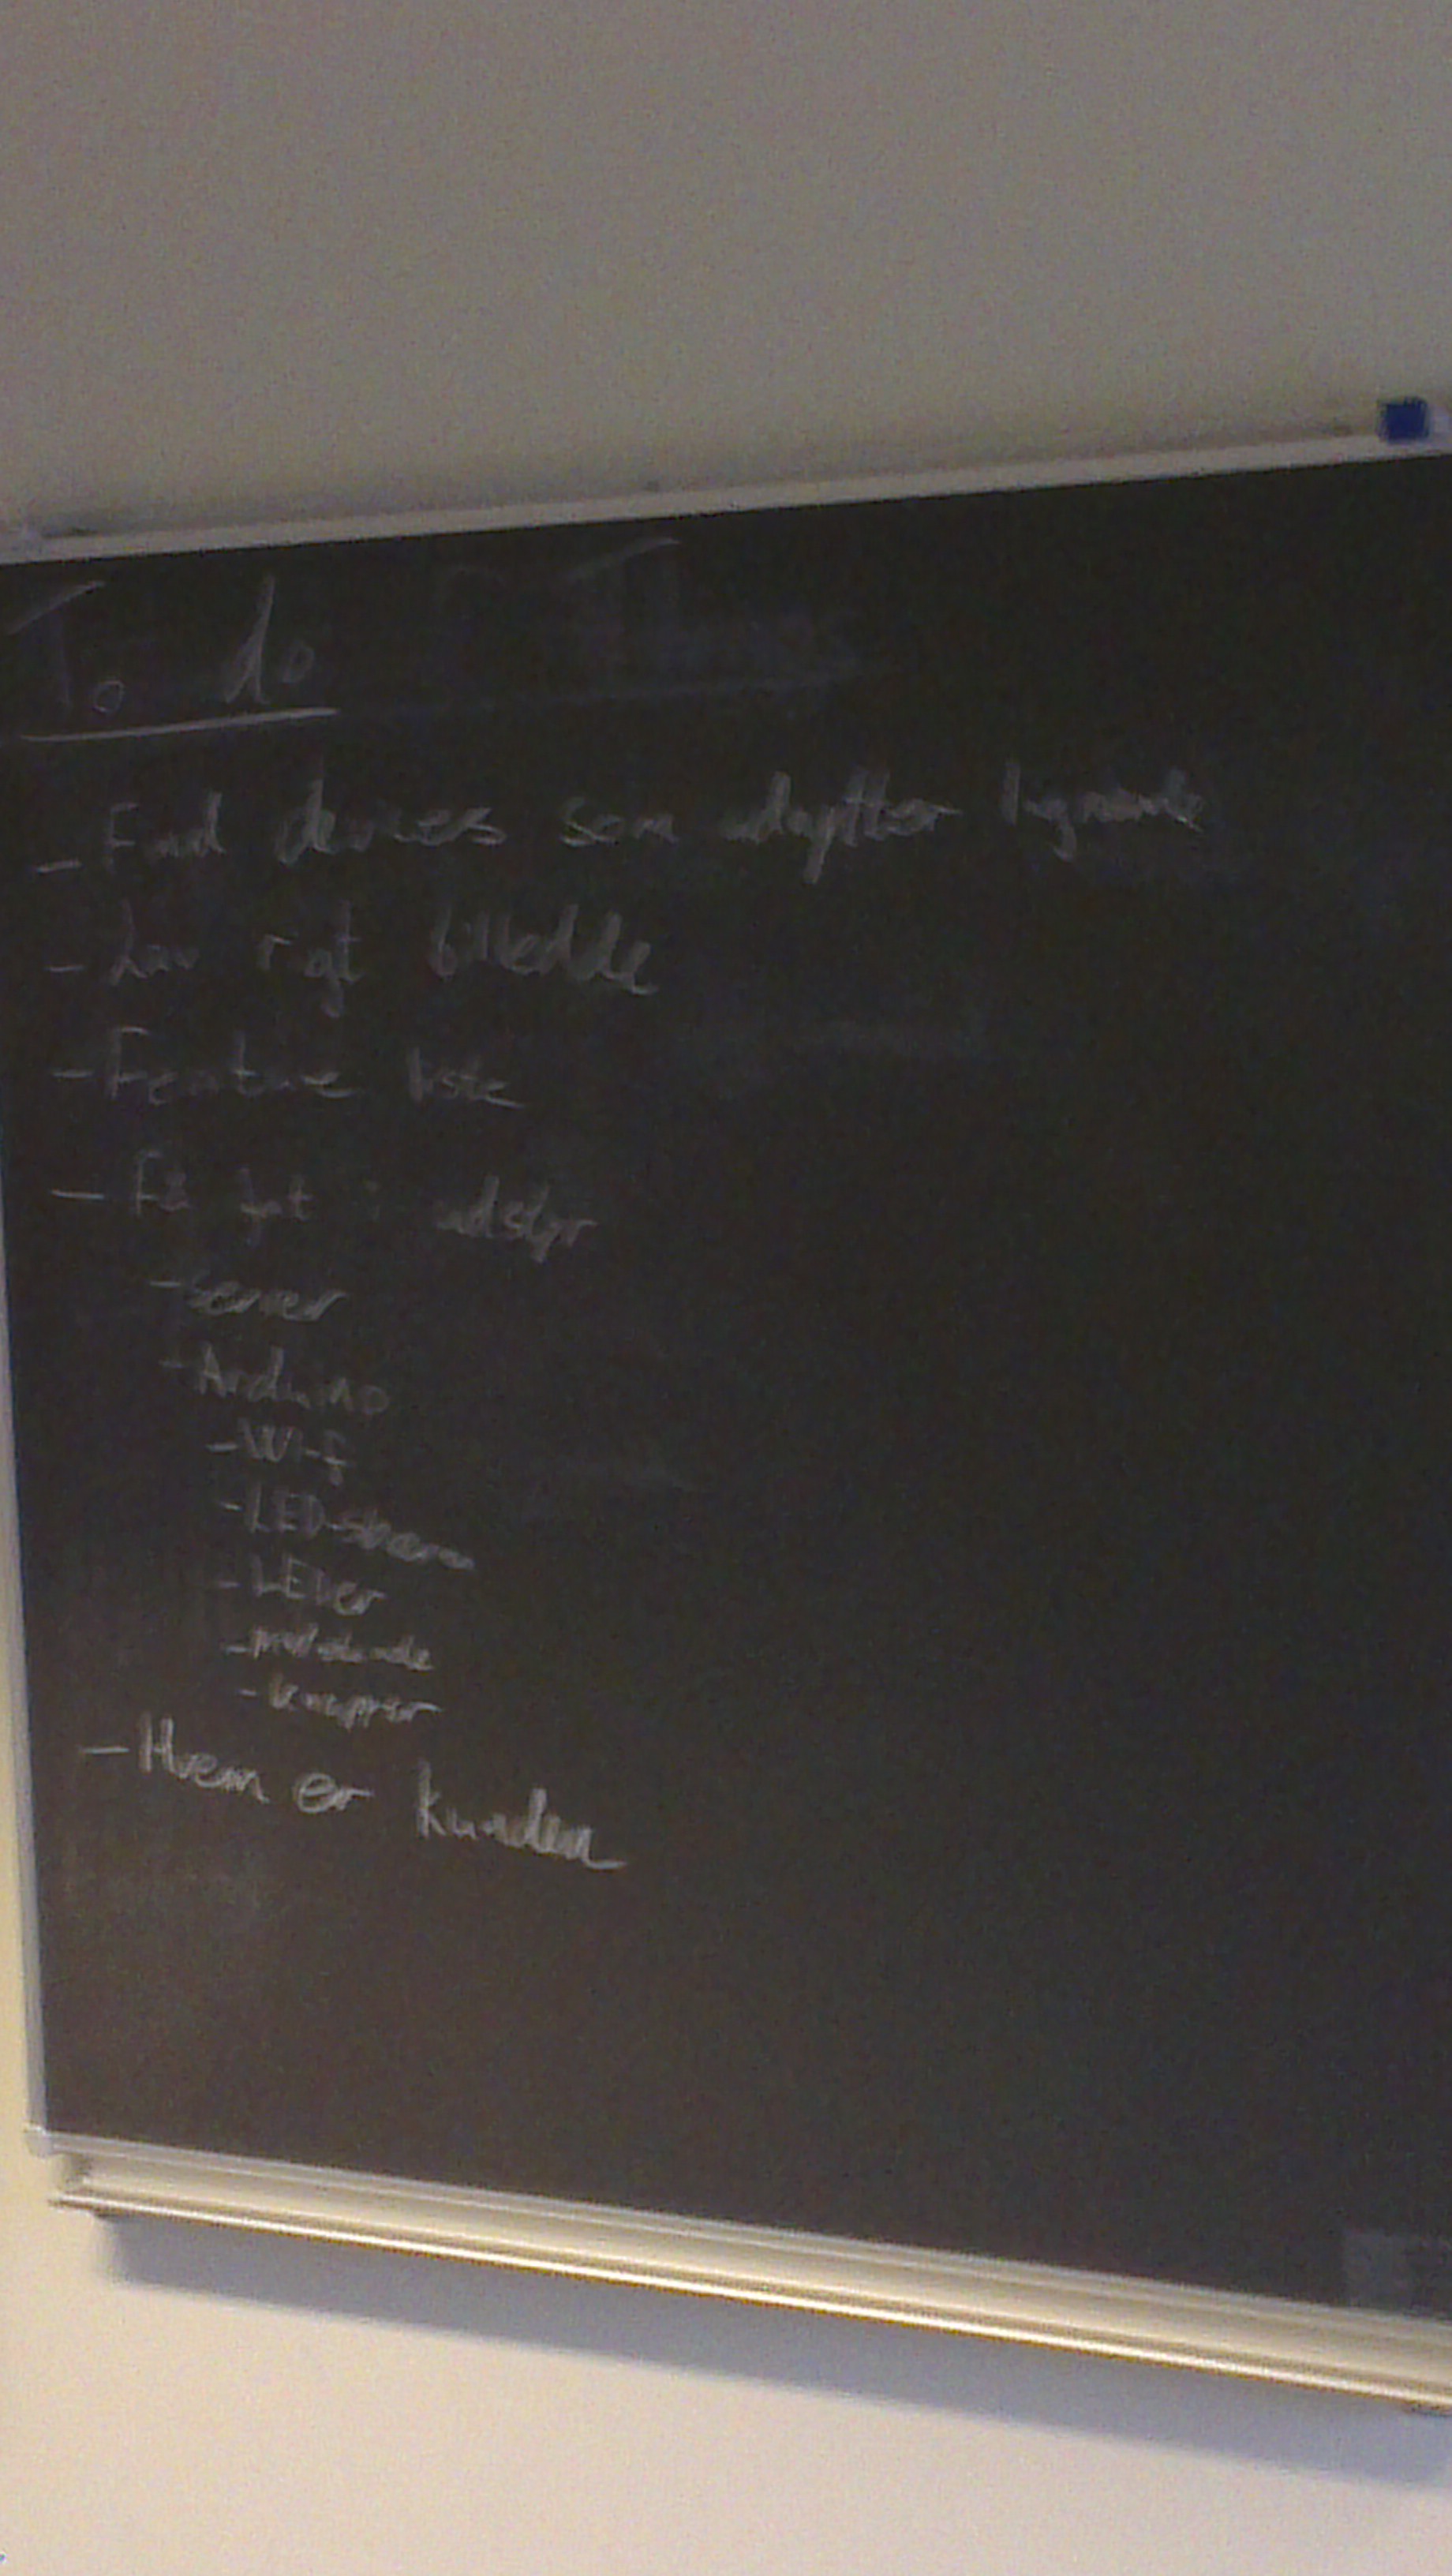 To do
- Find devices som adapter lignende
- Lav rigt billedde
- Feature liste
- Få fat i udstyr
- Server
- Arduino
- Wi-f
- LED-skærm
- LEDer
- knapper
- Hvem er kunden